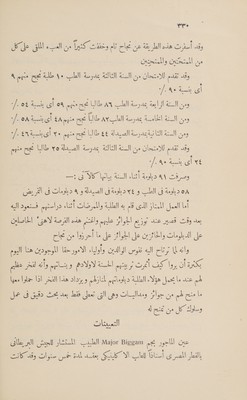 — ٣٣٠ —
وقد أسفرت هذه الطريقة عن نجاح تام وخففت كثيراً من العبء الملقى على كل
من الممتحنين والممتحنين
وقد تقدم للامتحان من السنة الثالثة بمدرسة الطب ١٠ طلبة نجح منهم ٩
أى بنسبة ٩٠ ٪
ومن السنة الرابعة بمدرسة الطب ٨٦ طالبا نجح منهم ٥٩ أى بنسبة ٥٤ ٪
ومن السنة الخامسة بمدرسة الطب ٨٢ طالباً نجح منهم ٤٨ أى بنسبة ٥٨ ٪
ومن السنة الثانية بمدرسة الصيدلة ٤٤ طالبا نجح منهم ٢٠ أى بنسبة ٤٦ ٪
وقد تقدم للامتحان من السنة الثالثة بمدرسة الصيدلة ٢٥ طالبا نجح منهم
٢٤ أى بنسبة ٩٠ ٪
وصرفت ٩١ دبلومة أثناء السنة بيانها كالآتى :—
٥٨ دبلومة فى الطب و ٢٤ دبلومة فى الصيدلة و ٩ دبلومات فى التمريض
أما العمل الممتاز الذى قام به الطلبة والممرضات أثناء دراستهم فسنعود اليه
بعد وقت قصير عند توزيع الجوائز عليهم واغتنم هذه الفرصة لأهنئ الحاصلين
على الدبلومات والحائزين على الجوائز على ما أحرزوا من نجاح
وانه لما ترتاح اليه نفوس الوالدين وأولياء الامور حقا الموجودين هنا اليوم
بكثرة أن يروا كيف أثمرت تربيتهم الحسنة لاولادهم وبناتهم وأنه لفخر عظيم
لهم عند ما يحمل هؤلاء الطلبة دبلوماتهم لمنازلهم ويزداد هذا الفخر اذا حملوا معها
ما منح لهم من جوائز ومداليات وهى التى تعطى فقط بعد بحث دقيق فى عمل
وسلوك كل من تمنح له
التعيينات
عين الماجور بجم Major Biggam الطبيب المستشار للجيش البريطانى
بالقطر المصرى أستاذاً للطب الاكلينيكى بعقد لمدة خمس سنوات وقد كانت